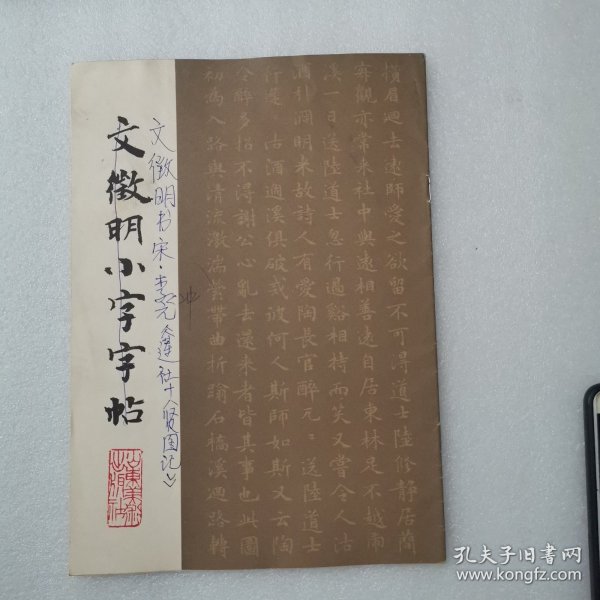 文徵明小字字帖
文徵明书宋·李冲元《莲社十八贤图记》
攢眉迴去遠師愛之欲留不可得道士陸修静居蘭
亦常来社中與遠相善遠自居東林足不越雨
溪一日送陸道士忽行過谿相持而笑又嘗令人沽
酒引淵明来故詩人有愛陶長官醉兀兀送陸道士
行遲沽酒過溪俱破戒彼何人斯師如斯又云陶
令醉多招不得謝公心亂去還来者皆其事也此圖
初為入路與清流激湍縈帶曲折踰石橋溪迴路轉
山東美術出版社
孔夫子旧书网
www.kongfz.com